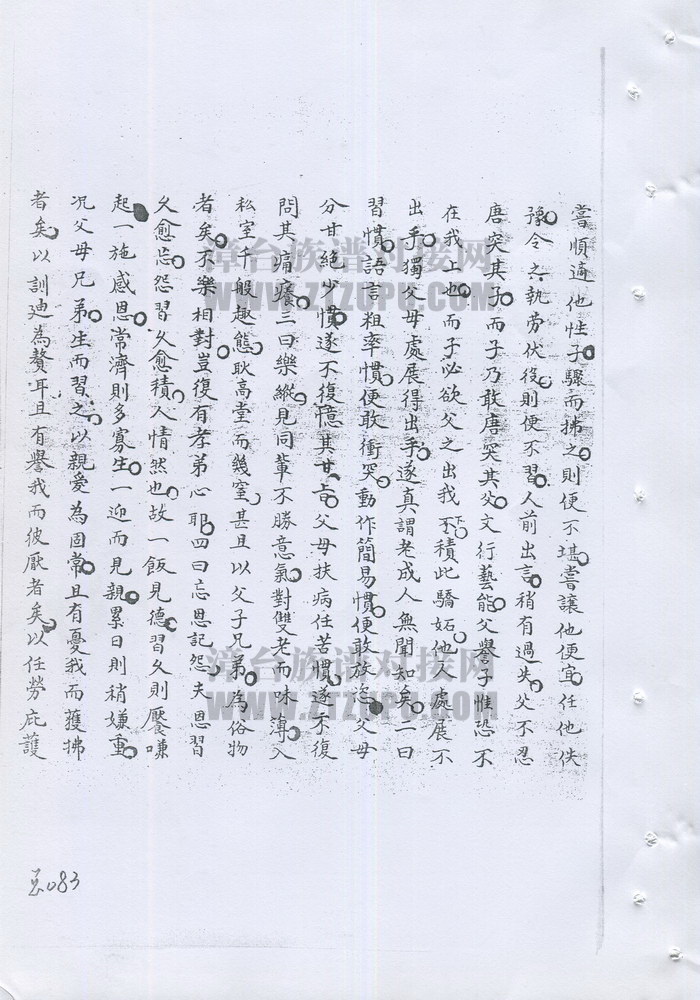 嘗順適他性子驟而拂之則便不堪嘗讓他便宜任他佚
豫令之執勞伏役則便不習人前出言稍有過失父不忍
唐突其子而子乃敢唐突其父文行藝能父譽子惟恐不
在我上也而子必欲父之出我下不積此驕妬他人處展不
出手獨父母處展得出手遂真謂老成人無聞知矣二曰
習慣語言粗率慣便敢衝突動作簡易慣便敢放恣父母
分甘絶少慣遂不復憶其甘旨父母扶病任苦慣遂不復
問其痛癢三曰樂縱見同輩不勝意氣對雙老而味薄入
私室千般趣態耿高堂而幾窒甚且以父子兄弟為俗物
者矣不樂相對豈復有孝弟心耶四曰忘恩記怨夫恩習
久愈忘怨習久愈積人情然也故一飯見德習久則饜嗛
起一施感恩常濟則多寡生一迎而見親累日則稍嫌重
况父母兄弟生而習之以親愛為固常且有憂我而獲拂
者矣以訓迪為贅耳且有譽我而彼厭者矣以任勞庇護
总083
漳台族谱对接网
WWW.ZTZUPU.COM
漳台族谱对接网
WWW.ZTZUPU.COM